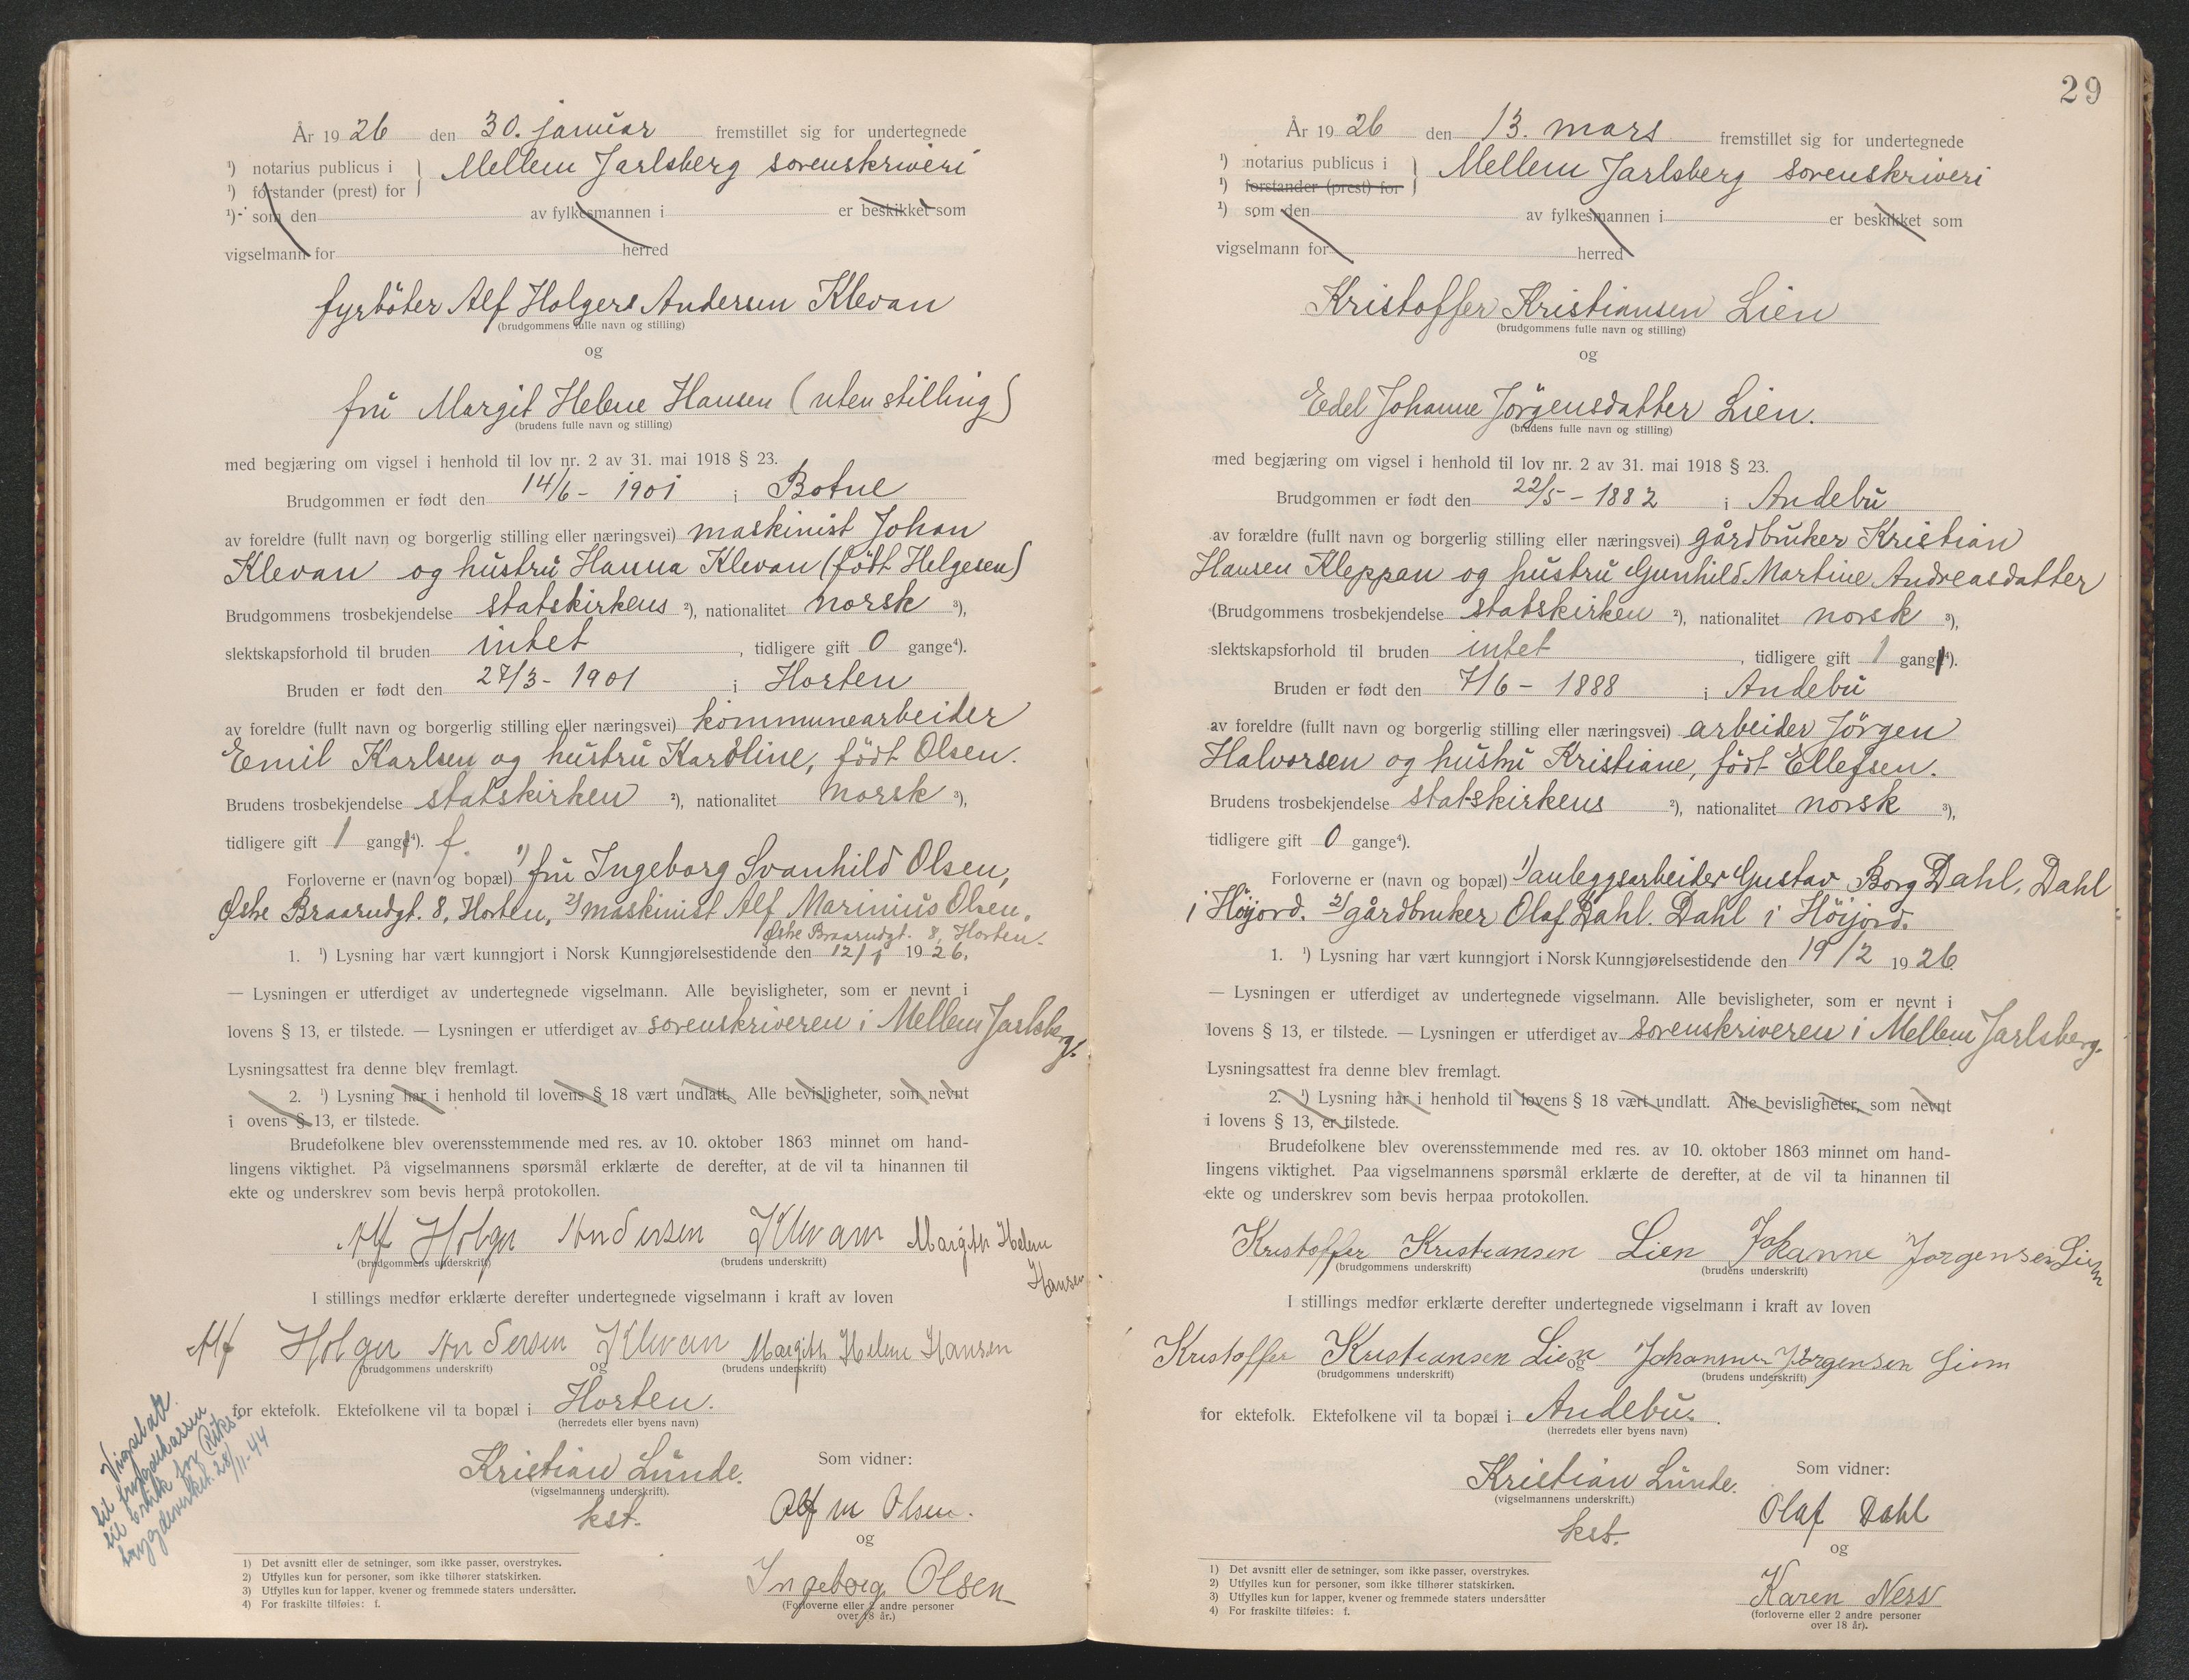 År 1926 den 30. januar fremstillet sig for undertegnede
¹) notarius publicus i } Mellem Jarlsberg sorenskriveri
¹) forstander (prest) for
¹) som den av fylkesmannen i er beskikket som
vigselmann for herred
fyrbøter Alf Holger Andersen Klevan
(brudgommens fulle navn og stilling)
og
fru Margit Helene Hansen (uten stilling)
(brudens fulle navn og stilling)
med begjæring om vigsel i henhold til lov nr. 2 av 31. mai 1918 § 23.
Brudgommen er født den 14/6 - 1901 i Botne
av foreldre (fullt navn og borgerlig stilling eller næringsvei) maskinist Johan
Klevan og hustru Hanna Klevan (født Helgesen)
Brudgommens trosbekjendelse statskirkens ²), nationalitet norsk ³),
slektskapsforhold til bruden intet, tidligere gift 0 gange⁴).
Bruden er født den 27/3 - 1901 i Horten
av foreldre (fullt navn og borgerlig stilling eller næringsvei) kommunearbeider
Emil Karlsen og hustru Karoline, født Olsen.
Brudens trosbekjendelse statskirken ²), nationalitet norsk ³),
tidligere gift 1 gang⁴). f.
Forloverne er (navn og bopæl) 1) fru Ingeborg Svanhild Olsen,
Østre Braarudgt. 8, Horten, 2) maskinist Alf Marinius Olsen,
Østre Braarudgt. 8, Horten.
1. ¹) Lysning har vært kunngjort i Norsk Kunngjørelsestidende den 12/1 1926.
— Lysningen er utferdiget av undertegnede vigselmann. Alle bevisligheter, som er nevnt i
lovens § 13, er tilstede. — Lysningen er utferdiget av sorenskriveren i Mellem Jarlsberg.
Lysningsattest fra denne blev fremlagt.
2. ¹) Lysning har i henhold til lovens § 18 vært undlatt. Alle bevisligheter, som nevnt
i ovens § 13, er tilstede.
Brudefolkene blev overensstemmende med res. av 10. oktober 1863 minnet om hand-
lingens viktighet. På vigselmannens spørsmål erklærte de derefter, at de vil ta hinannen til
ekte og underskrev som bevis herpå protokollen.
Alf Holger Andersen Klevan Margith Helene
Hansen
(brudgommens underskrift) (brudens underskrift)
I stillings medfør erklærte derefter undertegnede vigselmann i kraft av loven
Alf Holger Andersen Klevan Margith Helene Hansen
(brudgommens underskrift) og (brudens underskrift)
for ektefolk. Ektefolkene vil ta bopæl i Horten.
(herredets eller byens navn)
Kristian Lunde.
(vigselmannens underskrift).
kst.
Som vidner:
Alf M Olsen.
og
Ingeborg Olsen
(Forloverne eller 2 andre personer
over 18 år.)
Vigselsatt.
til
til bruk for Riks-
trygdeverket. 28/11-44
1) Det avsnitt eller de setninger, som ikke passer, overstrykes.
2) Utfylles kun for personer, som ikke tilhører statskirken.
3) Utfylles kun for lapper, kvener og fremmede staters undersåtter.
4) For fraskilte tilføies: f.
29
År 1926 den 13. mars fremstillet sig for undertegnede
¹) notarius publicus i } Mellem Jarlsberg sorenskriveri
¹) forstander (prest) for
¹) som den av fylkesmannen i er beskikket som
vigselmann for herred
Kristoffer Kristiansen Lien
(brudgommens fulle navn og stilling)
og
Edel Johanne Jörgensdatter Lien.
(brudens fulle navn og stilling)
med begjæring om vigsel i henhold til lov nr. 2 av 31. mai 1918 § 23.
Brudgommen er født den 22/5 - 1882 i Andebu
av forældre (fullt navn og borgerlig stilling eller næringsvei) gårdbruker Kristian
Hansen Kleppan og hustru Gunhild Martine Andreasdatter
(Brudgommens trosbekjendelse statskirken ²), nationalitet norsk ³),
slektskapsforhold til bruden intet, tidligere gift 1 gang⁴).
Bruden er født den 7/6 - 1888 i Andebu
av foreldre (fullt navn og borgerlig stilling eller næringsvei) arbeider Jörgen
Halvorsen og hustru Kristiane, født Ellefsen.
Brudens trosbekjendelse statskirkens ²), nationalitet norsk ³),
tidligere gift 0 gange⁴).
Forloverne er (navn og bopæl) 1) anleggsarbeider Gustav Borg Dahl, Dahl
i Höijord. 2) gårdbruker Olaf Dahl. Dahl i Höijord.
1. ¹) Lysning har vært kunngjort i Norsk Kunngjørelsestidende den 19/2 1926.
— Lysningen er utferdiget av undertegnede vigselmann. Alle bevisligheter, som er nevnt i
lovens § 13, er tilstede. — Lysningen er utferdiget av sorenskriveren i Mellem Jarlsberg.
Lysningsattest fra denne blev fremlagt.
2. ¹) Lysning har i henhold til lovens § 18 vært undlatt. Alle bevisligheter, som nevnt
i lovens § 13, er tilstede.
Brudefolkene blev overensstemmende med res. av 10. oktober 1863 minnet om hand-
lingens viktighet. Paa vigselmannens spørsmål erklærte de derefter, at de vil ta hinannen til
ekte og underskrev som bevis herpaa protokollen.
Kristoffer Kristiansen Lien Johanne Jorgensen Lien
(brudgommens underskrift) (brudens underskrift)
I stillings medfør erklærte derefter undertegnede vigselmann i kraft av loven
Kristoffer Kristiansen Lien og Johanne Jörgensen Lien
(brudgommens underskrift) (brudens underskrift)
for ektefolk. Ektefolkene vil ta bopæl i Andebu.
(herredets eller byens navn)
Kristian Lunde.
(vigselmannens underskrift.)
kst.
Som vidner:
Olaf Dahl
og
Karen Ness
(forloverne eller 2 andre personer
over 18 år).
1) Det avsnitt eller de setninger, som ikke passer, overstrykes.
2) Utfylles kun for personer, som ikke tilhører statskirken.
3) Utfylles kun for lapper, kvener og fremmede staters undersåtter
4) For fraskilte tilføies: f.